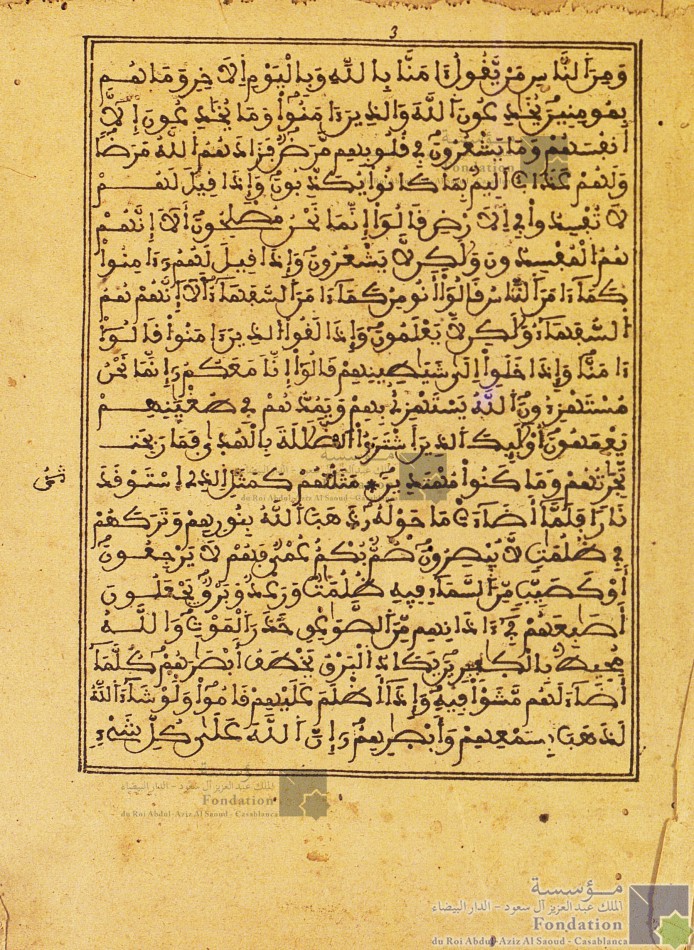 3
وَمِنَ ٱلنَّاسِ مَنْ يَّقُولُ ءَامَنَّا بِاللَّهِ وَبِالْيَوْمِ اِلَاخِرِ وَمَا هُم
بِمُومِنِينَ يُخَٰدِعُونَ ٱللَّهَ وَالذِينَ ءَامَنُواْ وَمَا يُخَٰدِعُونَ إِلَّا
أَنفُسَهُمْ وَمَا يَشْعُرُونَ فِي قُلُوبِهِم مَّرَضٌ فَزَادَهُمُ ٱللَّهُ مَرَضاً
وَلَهُمْ عَذَابٌ اَلِيمٌ بِمَا كَانُواْ يُكَذِّبُونَ وَإِذَا قِيلَ لَهُمْ
لَا تُفْسِدُواْ فِي اِلَارْضِ قَالُواْ إِنَّمَا نَحْنُ مُصْلِحُونَ أَلَا إِنَّهُمْ
هُمُ ٱلْمُفْسِدُونَ وَلَٰكِن لَّا يَشْعُرُونَ وَإِذَا قِيلَ لَهُمُ ءَامِنُواْ
كَمَا ءَامَنَ ٱلنَّاسُ قَالُواْ أَنُومِنُ كَمَا ءَامَنَ ٱلسُّفَهَاءُ أَلَا إِنَّهُمْ هُمُ
ٱلسُّفَهَاءُ وَلَٰكِن لَّا يَعْلَمُونَ وَإِذَا لَقُواْ ٱلذِينَ ءَامَنُواْ قَالُواْ
ءَامَنَّا وَإِذَا خَلَوِاْ اِلَىٰ شَيَٰطِينِهِمْ قَالُواْ إِنَّا مَعَكُمُ إِنَّمَا نَحْنُ
مُسْتَهْزِءُونَ ٱللَّهُ يَسْتَهْزِئُ بِهِمْ وَيَمُدُّهُمْ فِي طُغْيَٰنِهِمْ
يَعْمَهُونَ أُوْلَٰئِكَ ٱلذِينَ ٱشْتَرَوُاْ ٱلضَّلَٰلَةَ بِالْهُدَىٰ فَمَا رَبِحَت
تِّجَٰرَتُهُمْ وَمَا كَانُواْ مُهْتَدِينَ مَثَلُهُمْ كَمَثَلِ ٱلذِي اِسْتَوْقَدَ
ثمن
نَاراً فَلَمَّا أَضَاءَتْ مَا حَوْلَهُ ذَهَبَ ٱللَّهُ بِنُورِهِمْ وَتَرَكَهُمْ
فِي ظُلُمَٰتٍ لَّا يُبْصِرُونَ صُمٌّ بُكْمٌ عُمْيٌ فَهُمْ لَا يَرْجِعُونَ
أَوْ كَصَيِّبٍ مِّنَ ٱلسَّمَاءِ فِيهِ ظُلُمَٰتٌ وَرَعْدٌ وَبَرْقٌ يَجْعَلُونَ
أَصَٰبِعَهُمْ فِي ءَاذَانِهِم مِّنَ ٱلصَّوَٰعِقِ حَذَرَ ٱلْمَوْتِ وَاللَّهُ
مُحِيطٌ بِالْكَٰفِرِينَ يَكَادُ ٱلْبَرْقُ يَخْطَفُ أَبْصَٰرَهُمْ كُلَّمَا
أَضَاءَ لَهُم مَّشَوْاْ فِيهِ وَإِذَا أَظْلَمَ عَلَيْهِمْ قَامُواْ وَلَوْ شَاءَ ٱللَّهُ
لَذَهَبَ بِسَمْعِهِمْ وَأَبْصَٰرِهِمُ إِنَّ ٱللَّهَ عَلَىٰ كُلِّ شَيْءٍ
مؤسسة
الملك عبد العزيز آل سعود - الدار البيضاء
Fondation
du Roi Abdul-Aziz Al Saoud - Casablanca
مؤسسة
الملك عبد العزيز آل سعود - الدار البيضاء
Fondation
du Roi Abdul-Aziz Al Saoud - Casablanca